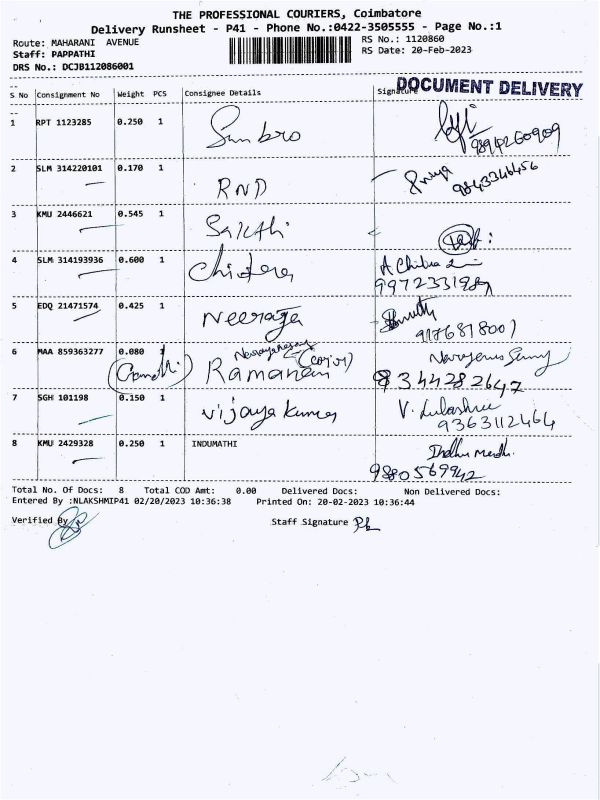 THE PROFESSIONAL COURIERS, Coimbatore
Delivery Runsheet - P41 - Phone No.:0422-3505555 - Page No.:1
Route: MAHARANI AVENUE
RS No.: 1120860
Staff: PAPPATHI
RS Date: 20-Feb-2023
DRS No.: DCJB112086001
DOCUMENT DELIVERY
S No Consignment No Weight PCS Consignee Details Signature
1 RPT 1123285 0.250 1
2 SLM 314220101 0.170 1 RND Priya
9843346456
3 KMU 2446621 0.545 1 Sakthi
4 SLM 314193936 0.600 1 A Chitra
9972331987
5 EDQ 21471574 0.425 1 Neeraja
9176878001
6 MAA 859363277 0.080 1 Ramanan
8344282647
7 SGH 101198 0.150 1 Vijaya kumar V.
9363112464
8 KMU 2429328 0.250 1 INDUMATHI
9880569942
Total No. Of Docs: 8 Total COD Amt: 0.00 Delivered Docs: Non Delivered Docs:
Entered By :NLAKSHMIP41 02/20/2023 10:36:38 Printed On: 20-02-2023 10:36:44
Verified By Staff Signature